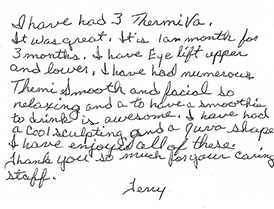 I have had 3 ThermiVa.
It was great. It is 1 a month for
3 months. I have Eye lift upper
and lower. I have had numerous
Themi Smooth and facial so
relaxing and a to have a smoothie
to drink is awesome. I have had
a Cool sculpting and a Quva shape
I have enjoyed all of these.
Thank you so much for your caring
staff.
Terry